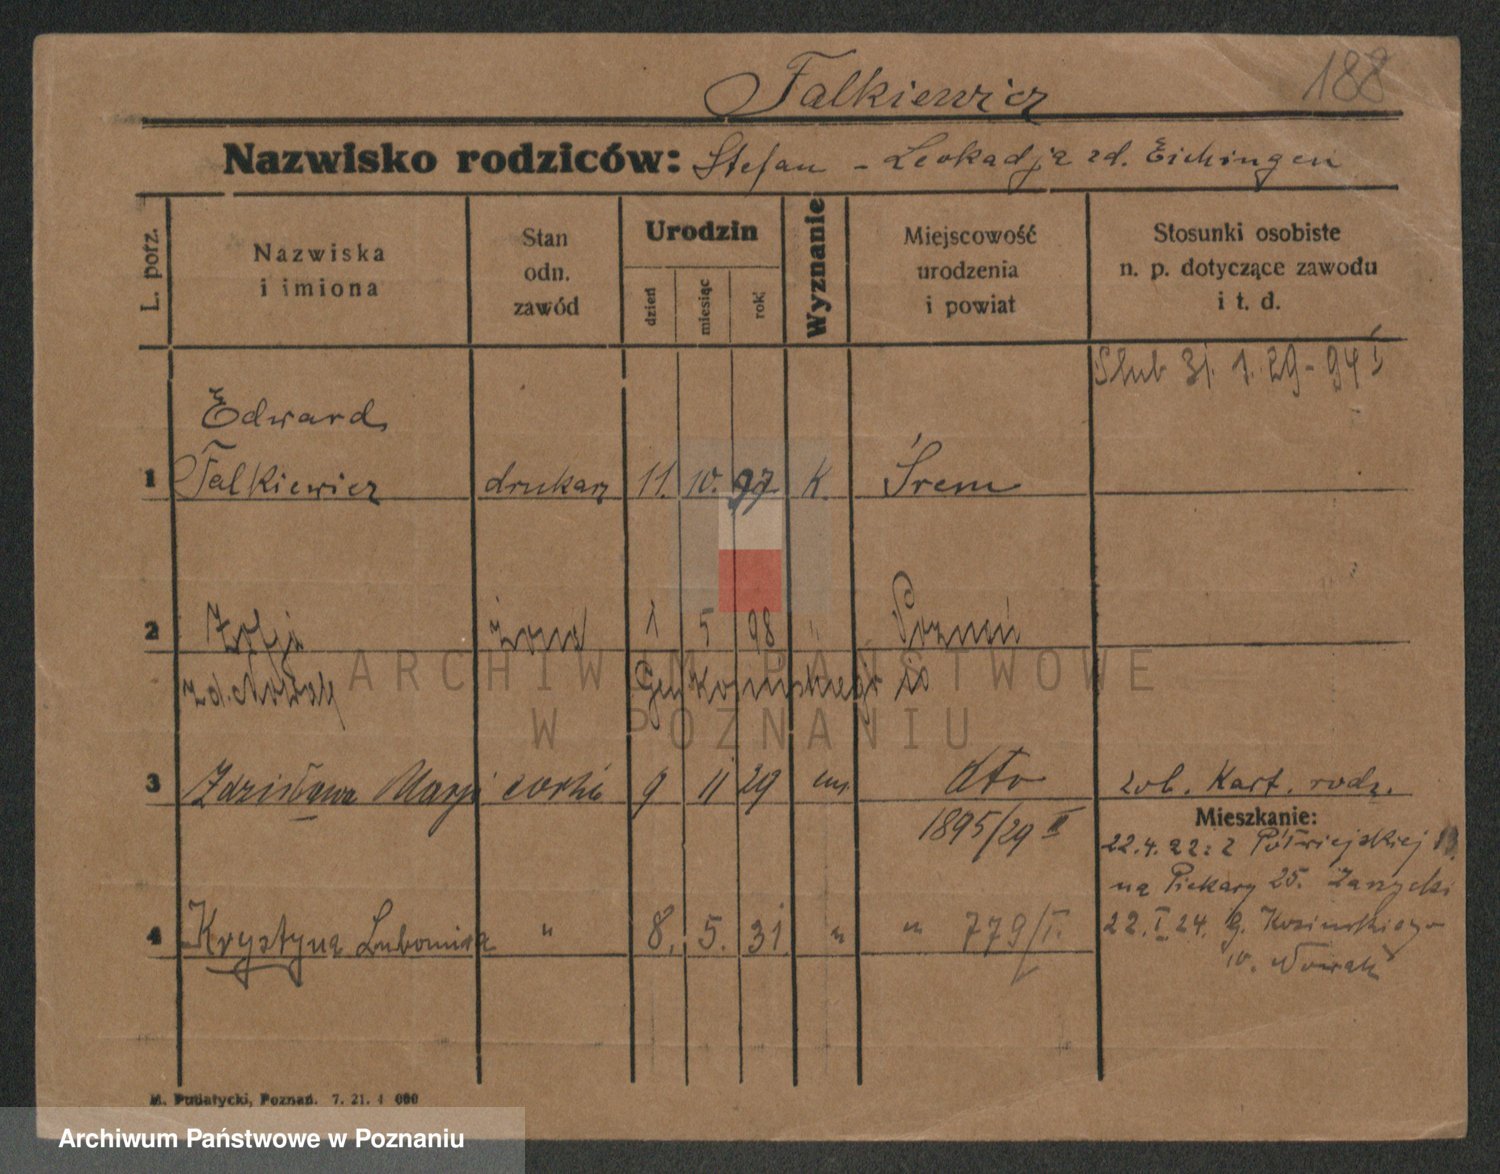 188
Falkiewicz
Nazwisko rodziców: Stefan - Leokadja zd. Eichingen
L. porz.
Nazwiska
i imiona
Stan
odn.
zawód
Urodzin
dzień
miesiąc
rok
Wyznanie
Miejscowość
urodzenia
i powiat
Stosunki osobiste
n. p. dotyczące zawodu
i t. d.
Ślub 31. 1. 29 - 94 I
Edward
1 Falkiewicz drukarz 11. 10. 97 K. Śrem
2 Zofja żona 1 5 98 " Poznań
zd. Nowak Gen Kosińskiego 10
3 Zdzisława Marja córka 9 11 29 " dto zob. Kart. rodz.
1895/29 II
Mieszkanie:
22.4.22: z Półwiejskiej
na Piekary 25.
4 Krystyna Lubomira " 8. 5. 31 " " 779/I.
22. I. 24. g. Kosińskiego
10. Nowak
M. Putiatycki, Poznań. 7. 21. 4 000
ARCHIWUM PAŃSTWOWE
W POZNANIU
Archiwum Państwowe w Poznaniu